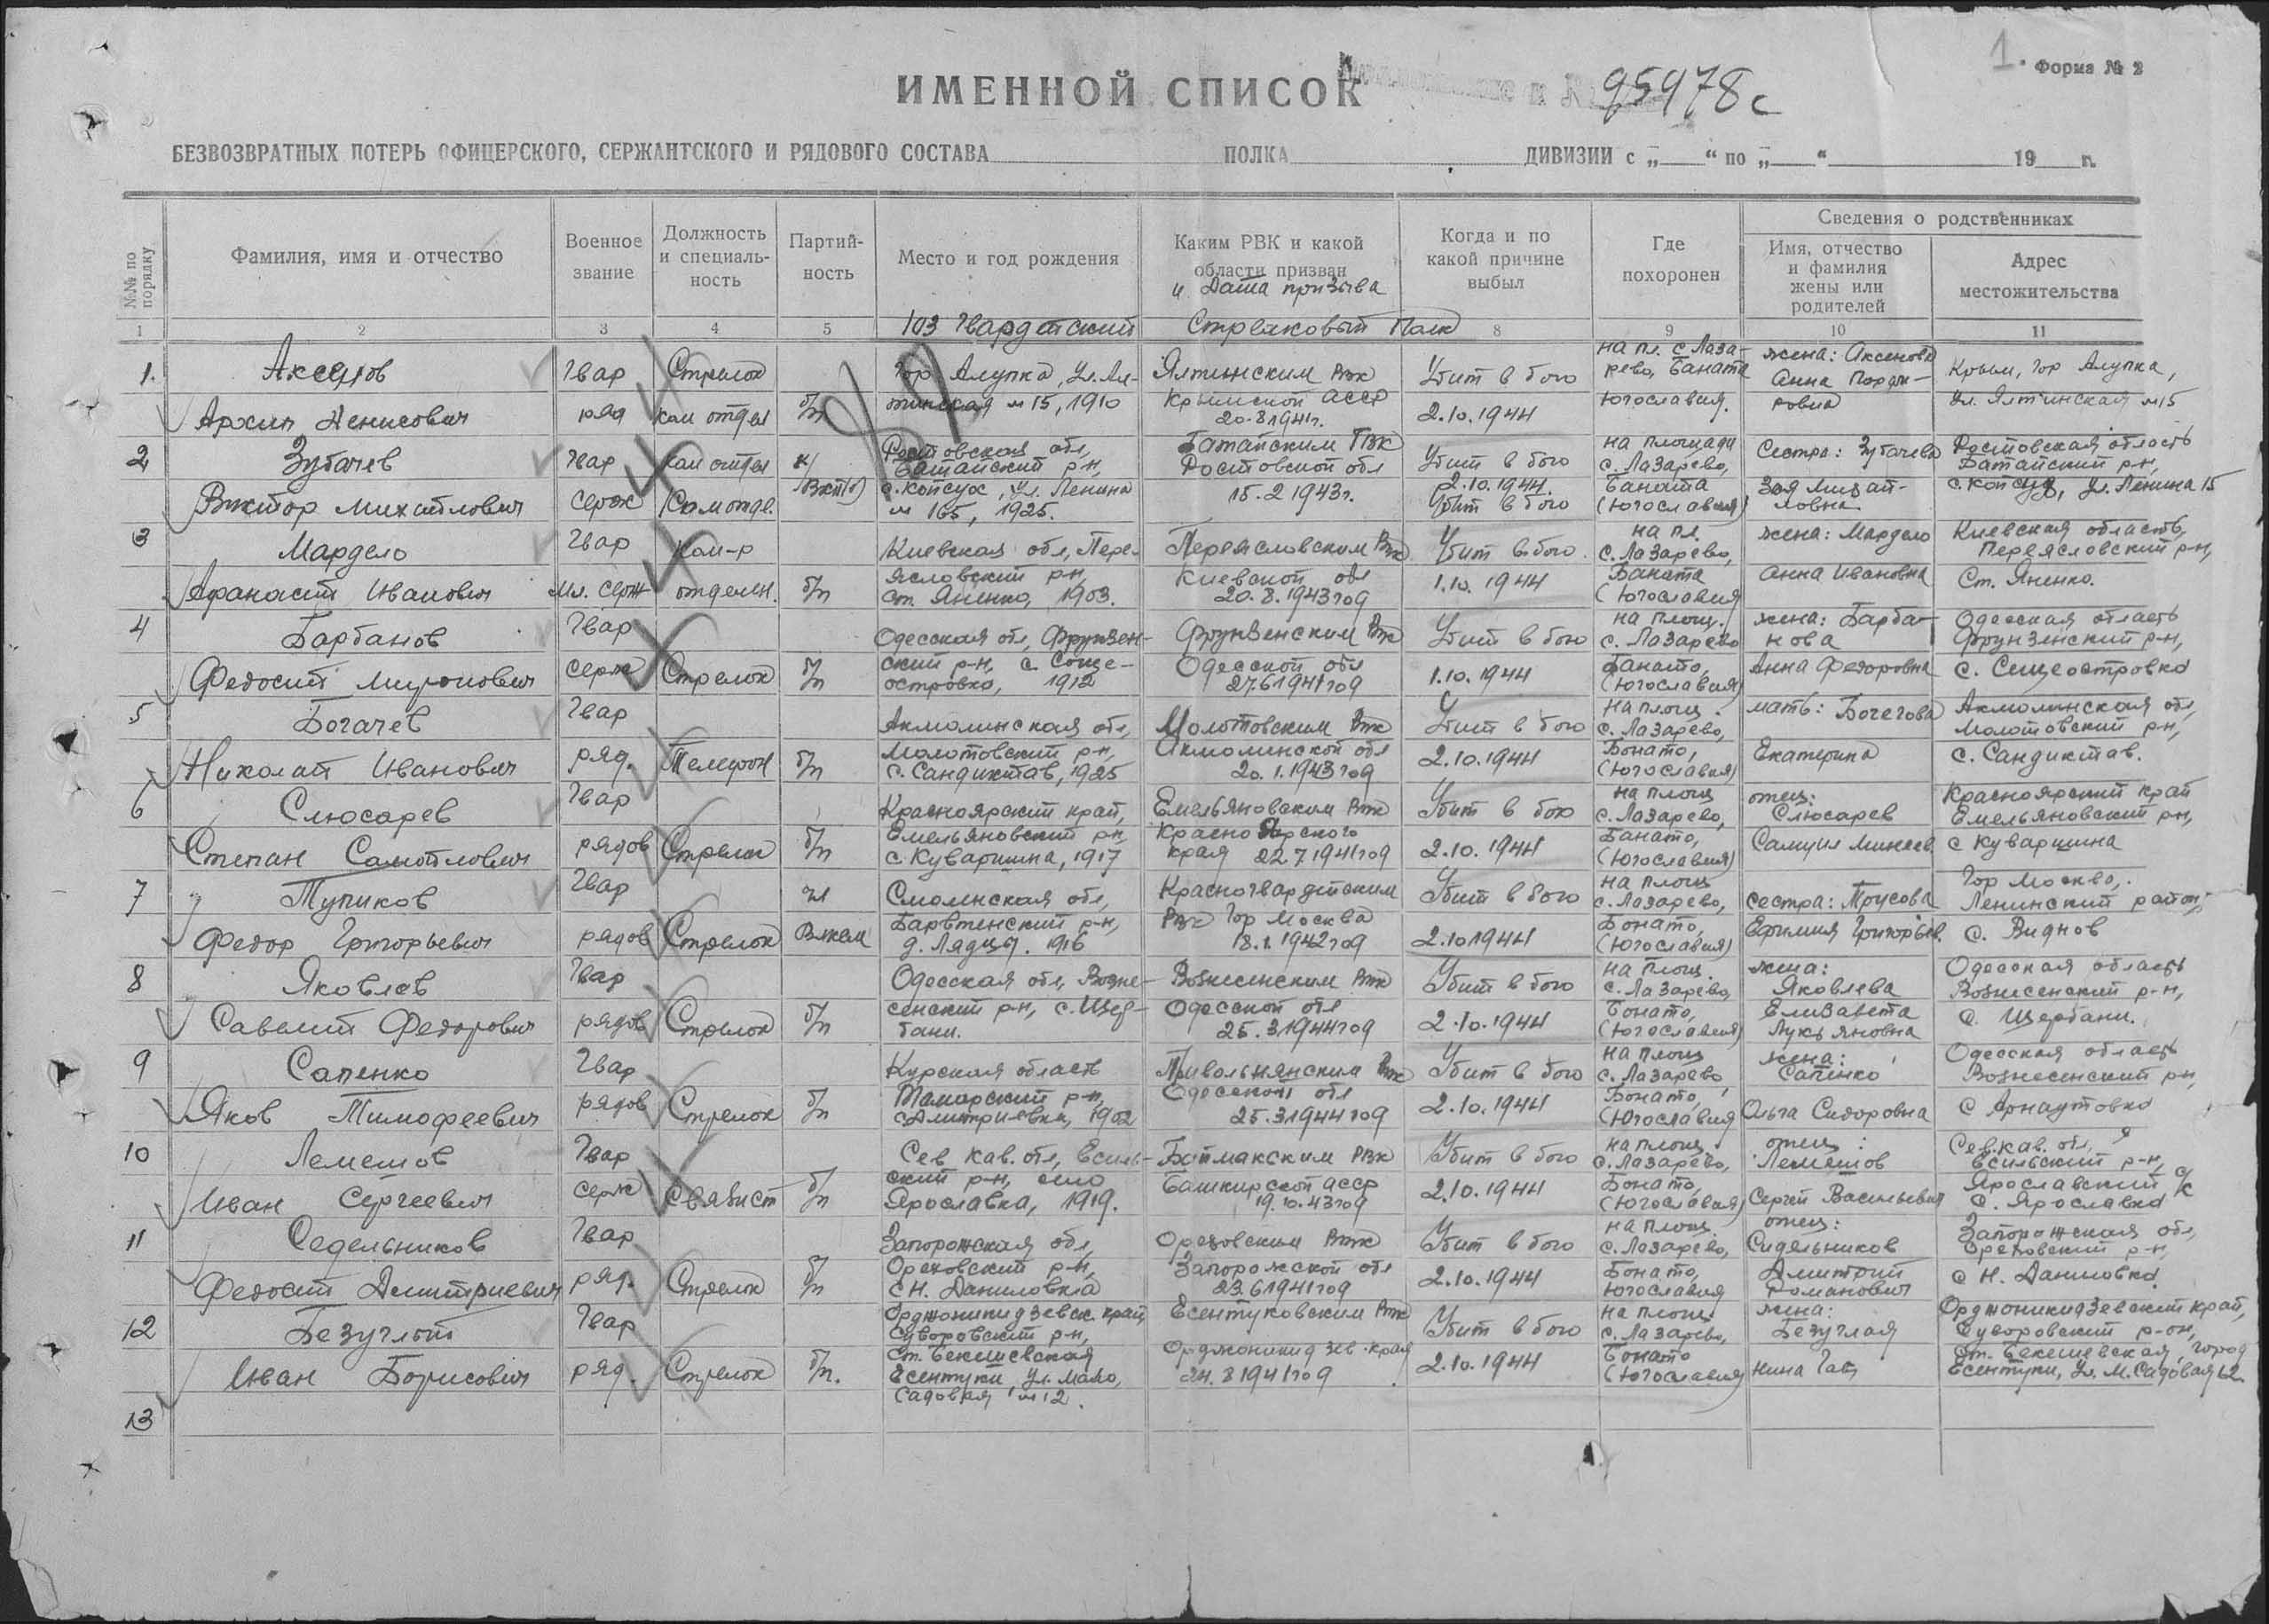 1.
Форма № 2
ИМЕННОЙ СПИСОК
95978с
БЕЗВОЗВРАТНЫХ ПОТЕРЬ ОФИЦЕРСКОГО, СЕРЖАНТСКОГО И РЯДОВОГО СОСТАВА ПОЛКА ДИВИЗИИ с „ “ по „ “ 19 г.
№№ по порядку
Фамилия, имя и отчество
Военное звание
Должность и специаль-ность
Партий-ность
Место и год рождения
Каким РВК и какой области призван
и Дата призыва
Когда и по какой причине выбыл
Где похоронен
Сведения о родственниках
Имя, отчество и фамилия жены или родителей
Адрес местожительства
1 2 3 4 5 8 9 10 11
103 Гвардейский Стрелковый Полк
1. Аксенов Архип Денисович
Гвар ряд
Стрелок ком отдел
б/п
Гор Алупка, Ул. Ял-тинская № 15, 1910
Ялтинским РВК Крымской АССР 20.8 1941г.
Убит в бою 2.10.1944
на пл. с Лаза-рево, Баната Югославия.
жена: Аксенова Анна
Крым, Гор Алупка, Ул. Ялтинская №15
2 Зубачев Виктор Михайлович
Гвар Серж
ком отдел Ком отде.
к/ ВКП(б)
Ростовская обл, Батайский р-н, с. Койсуг, ул. Ленина № 165, 1925.
Батайским ГВК Ростовской обл 15.2 1943г.
Убит в бою 2.10.1944. Убит в бою
на площади с. Лазарево, Баната (Югославия)
Сестра: Зубачева Зоя Михай-ловна
Ростовская область Батайский р-н, с. Койсуг, ул. Ленина 15
3 Мардело Афанасий Иванович
Гвар мл. серж
Ком-р отделен.
б/п
Киевская обл, Пере-ясловский р-н, ст. Яненко, 1903.
Переясловским РВК Киевской обл 20.8.1943год
Убит в бою. 1.10.1944
на пл. с. Лазарево, Баната (Югославия
жена: Мардело Анна Ивановна
Киевская область, Переясловский р-н, Ст. Яненко.
4 Барбанов Федосий Миронович
Гвар Серж
Стрелок
б/п
Одесская обл, Фрунзен-ский р-н, с. Соще-островка, 1912
Фрунзенским РВК Одесской обл 27.6 1941год
Убит в бою 1.10.1944
на площ. с. Лазарево Банато, (Югославия)
жена: Барба-нова Анна Федоровна
Одесская область Фрунзенский р-н, с. Сещеостровка
5 Богачев Николай Иванович
Гвар ряд.
Телефон
б/п
Акмолинская обл, Молотовский р-н, с. Сандиктав, 1925
Молотовским РВК Акмолинской обл 20.1.1943год
Убит в бою 2.10.1944
На площ. с. Лазарево, Бонато, (Югославия)
мать: Богачова Екатерина
Акмолинская обл, Молотовский р-н, с. Сандиктав.
6 Слюсарев Степан Самойлович
Гвар рядов
Стрелок
б/п
Красноярский край, Емельяновский р-н, с. Куваршина, 1917
Емельяновским РВК Красноярского края 22 7 1941год
Убит в бою 2.10.1944
на площ с. Лазарево, Банато, (Югославия)
отец: Слюсарев Самуил
Красноярский край Емельяновский р-н, с Куваршина
7 Тупиков Федор Григорьевич
Гвар рядов
Стрелок
чл ВЛКСМ
Смоленская обл, д. Лядцы. 1916
Красногвардейским РВК Гор Москва 18.1.1942год
Убит в бою 2.10 1944
на площ с. Лазарево, Бонато, (Югославия)
сестра: Трусова Ефимия Григорьев.
Гор Москва, Ленинский район, с. Виднов
8 Яковлев Савелий Федорович
Гвар рядов
Стрелок
б/п
Одесская обл, Возне-сенский р-н, с. Щер-бани.
Вознесенским РВК Одесской обл 25.3 1944год
Убит в бою 2.10.1944
на площ. с. Лазарево, Бонато, (Югославия)
жена: Яковлева Елизавета Лукьяновна
Одесская область Вознесенский р-н, с. Щербани.
9 Сапенко Яков Тимофеевич
Гвар рядов
Стрелок
б/п
Курская область р-н, с Дмитриевка, 1902
Привольнянским РВК Одесской обл 25.3 1944 год
Убит в бою 2.10.1944
на площ с. Лазарево Бонато, (Югославия
жена: Сапенко Ольга Сидоровна
Одесская область Вознесенский р-н, с Арнаутовка
10 Лемешов Иван Сергеевич
Гвар Серж
Связист
б/п
Сев Кав. обл, Есиль-ский р-н, село Ярославка, 1919.
Баймакским РВК Башкирской АССР 19.10.43год
Убит в бою 2.10.1944
на площ с. Лазарево, Бонато, (Югославия)
отец: Лемешов Сергей Васильевич
Сев.кав. обл, Есильский р-н, Ярославский с/к с. Ярославка
11 Седельников Федосий Дмитриевич
Гвар ряд.
Стрелок
б/п
Запорожская обл, Ореховский р-н, с Н. Даниловка
Ореховским РВК Запорожской обл 23.6 1941год
Убит в бою 2.10.1944
на площ с. Лазарево, Бонато, Югославия
отец: Сидельников Дмитрий Романович
Запорожская обл, Ореховский р-н, с Н. Даниловка.
12 Безуглый Иван Борисович
Гвар ряд.
Стрелок
б/п.
Орджоникидзевск. край, Суворовский р-н, Ст. Бекешевская Есентуки, Ул. Мало, Садовая № 12.
Есентуковским РВК Орджоникидзев. края 24.8 1941год
Убит в бою 2.10.1944
на площ с. Лазарево, Бонато (Югославия)
жена: Безуглая Нина
Орджоникидзевский край, Суворовский р-он, Ст. Бекешевская, город Есентуки, Ул. М. Садовая 12
13